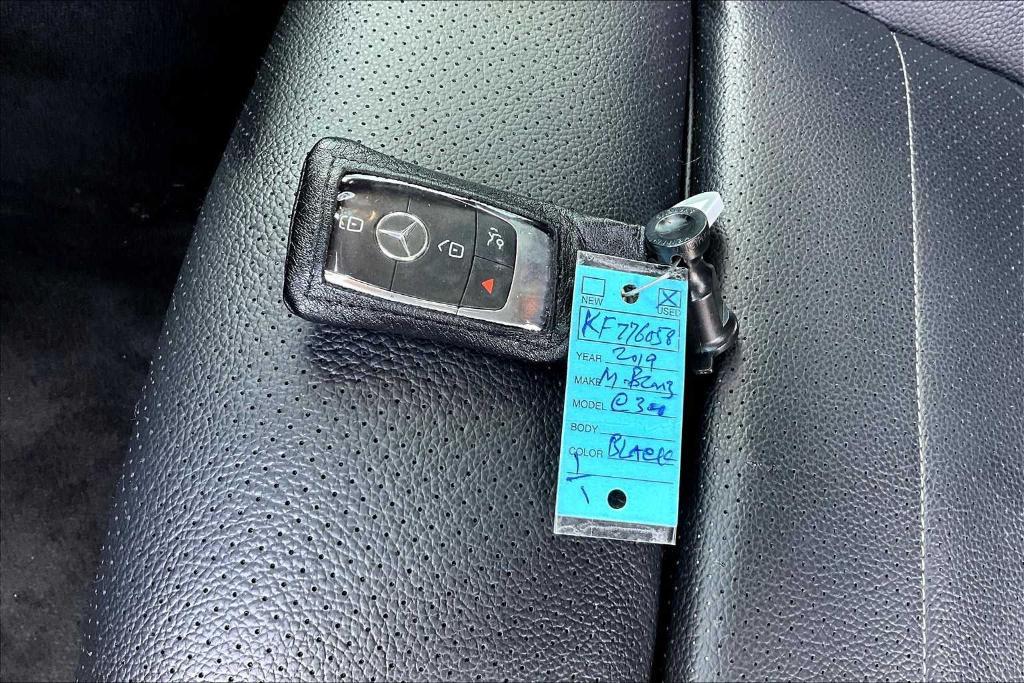 NEW USED
KF776058
YEAR 2019
MAKE M. Benz
MODEL C300
BODY
COLOR BLACK